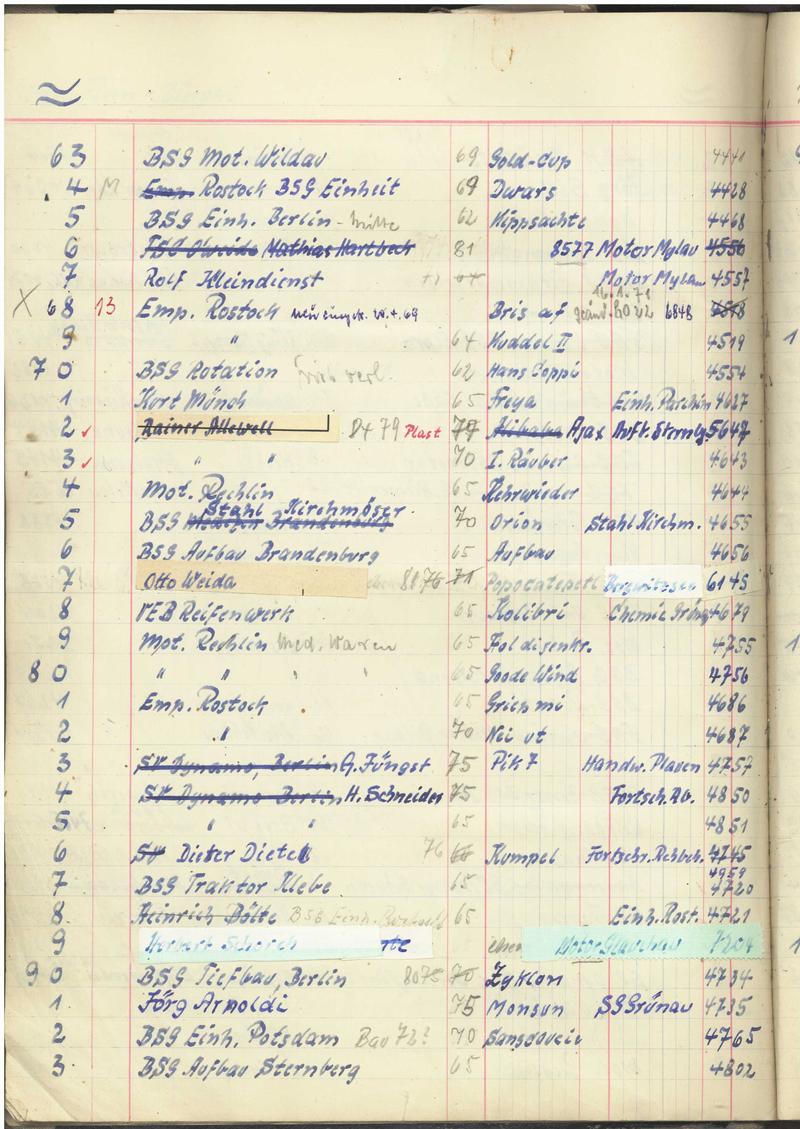 ≈
63 BSG Mot. Wildau 69 Gold-Cup 4440
4 M Emp. Rostock BSG Einheit 69 Dwars 4428
5 BSG Einh. Berlin - Mitte 62 Hippsachte 4468
6 Mathias Hartbeck 81 8577 Motor Mylau 4556
7 Rolf Kleindienst Motor Mylau 4557
X 68 13 Emp. Rostock 69 Bris af 16.1.71 6848
9 " 64 Kuddel II 4519
70 BSG Rotation 62 Hans Coppi 4554
1 Kurt Münch 65 Freya Einh. Parchim 4627
2 ✓ Rainer Allewell 8479 Plast 79 Alibaba Ajax Luft. Sternbg 5647
3 ✓ " " 70 I. Räuber 4643
4 Mot. Rechlin 65 Kehrwieder 4644
Stahl Kirchmöser
5 BSG Medizin Brandenburg 70 Orion Stahl Kirchm. 4655
6 BSG Aufbau Brandenburg 65 Aufbau 4656
7 Otto Weida 8876 71 Popocatepetl 6145
8 VEB Reifenwerk 65 Kolibri Chemie Grüng 4679
9 Mot. Rechlin Med. Waren 65 4755
80 " " " " 65 Goode Wind 4756
1 Emp. Rostock 65 Grien mi 4686
2 " 70 Nei ut 4687
3 SV Dynamo, Berlin G. Jüngst 75 Pik 7 Handw. Plauen 4757
4 SV Dynamo Berlin H. Schneider 75 Fortsch. Ab. 4850
5 " " 65 4851
6 SV Dieter Dietel 76 66 Kumpel Fortschr. Rehbch. 4745
4959
7 BSG Traktor Klebe 65 4720
8 Heinrich Bölte BSG Einh. 65 Einh. Rost. 4721
9 Herbert Schorch ehem Motor Glauchau 7204
90 BSG Tiefbau, Berlin 8075 70 Zyklon 4734
1 Jörg Arnoldi 75 Monsun SG Grünau 4735
2 BSG Einh. Potsdam Bau 72? 70 Sanssouci 4765
3 BSG Aufbau Sternberg 65 4802